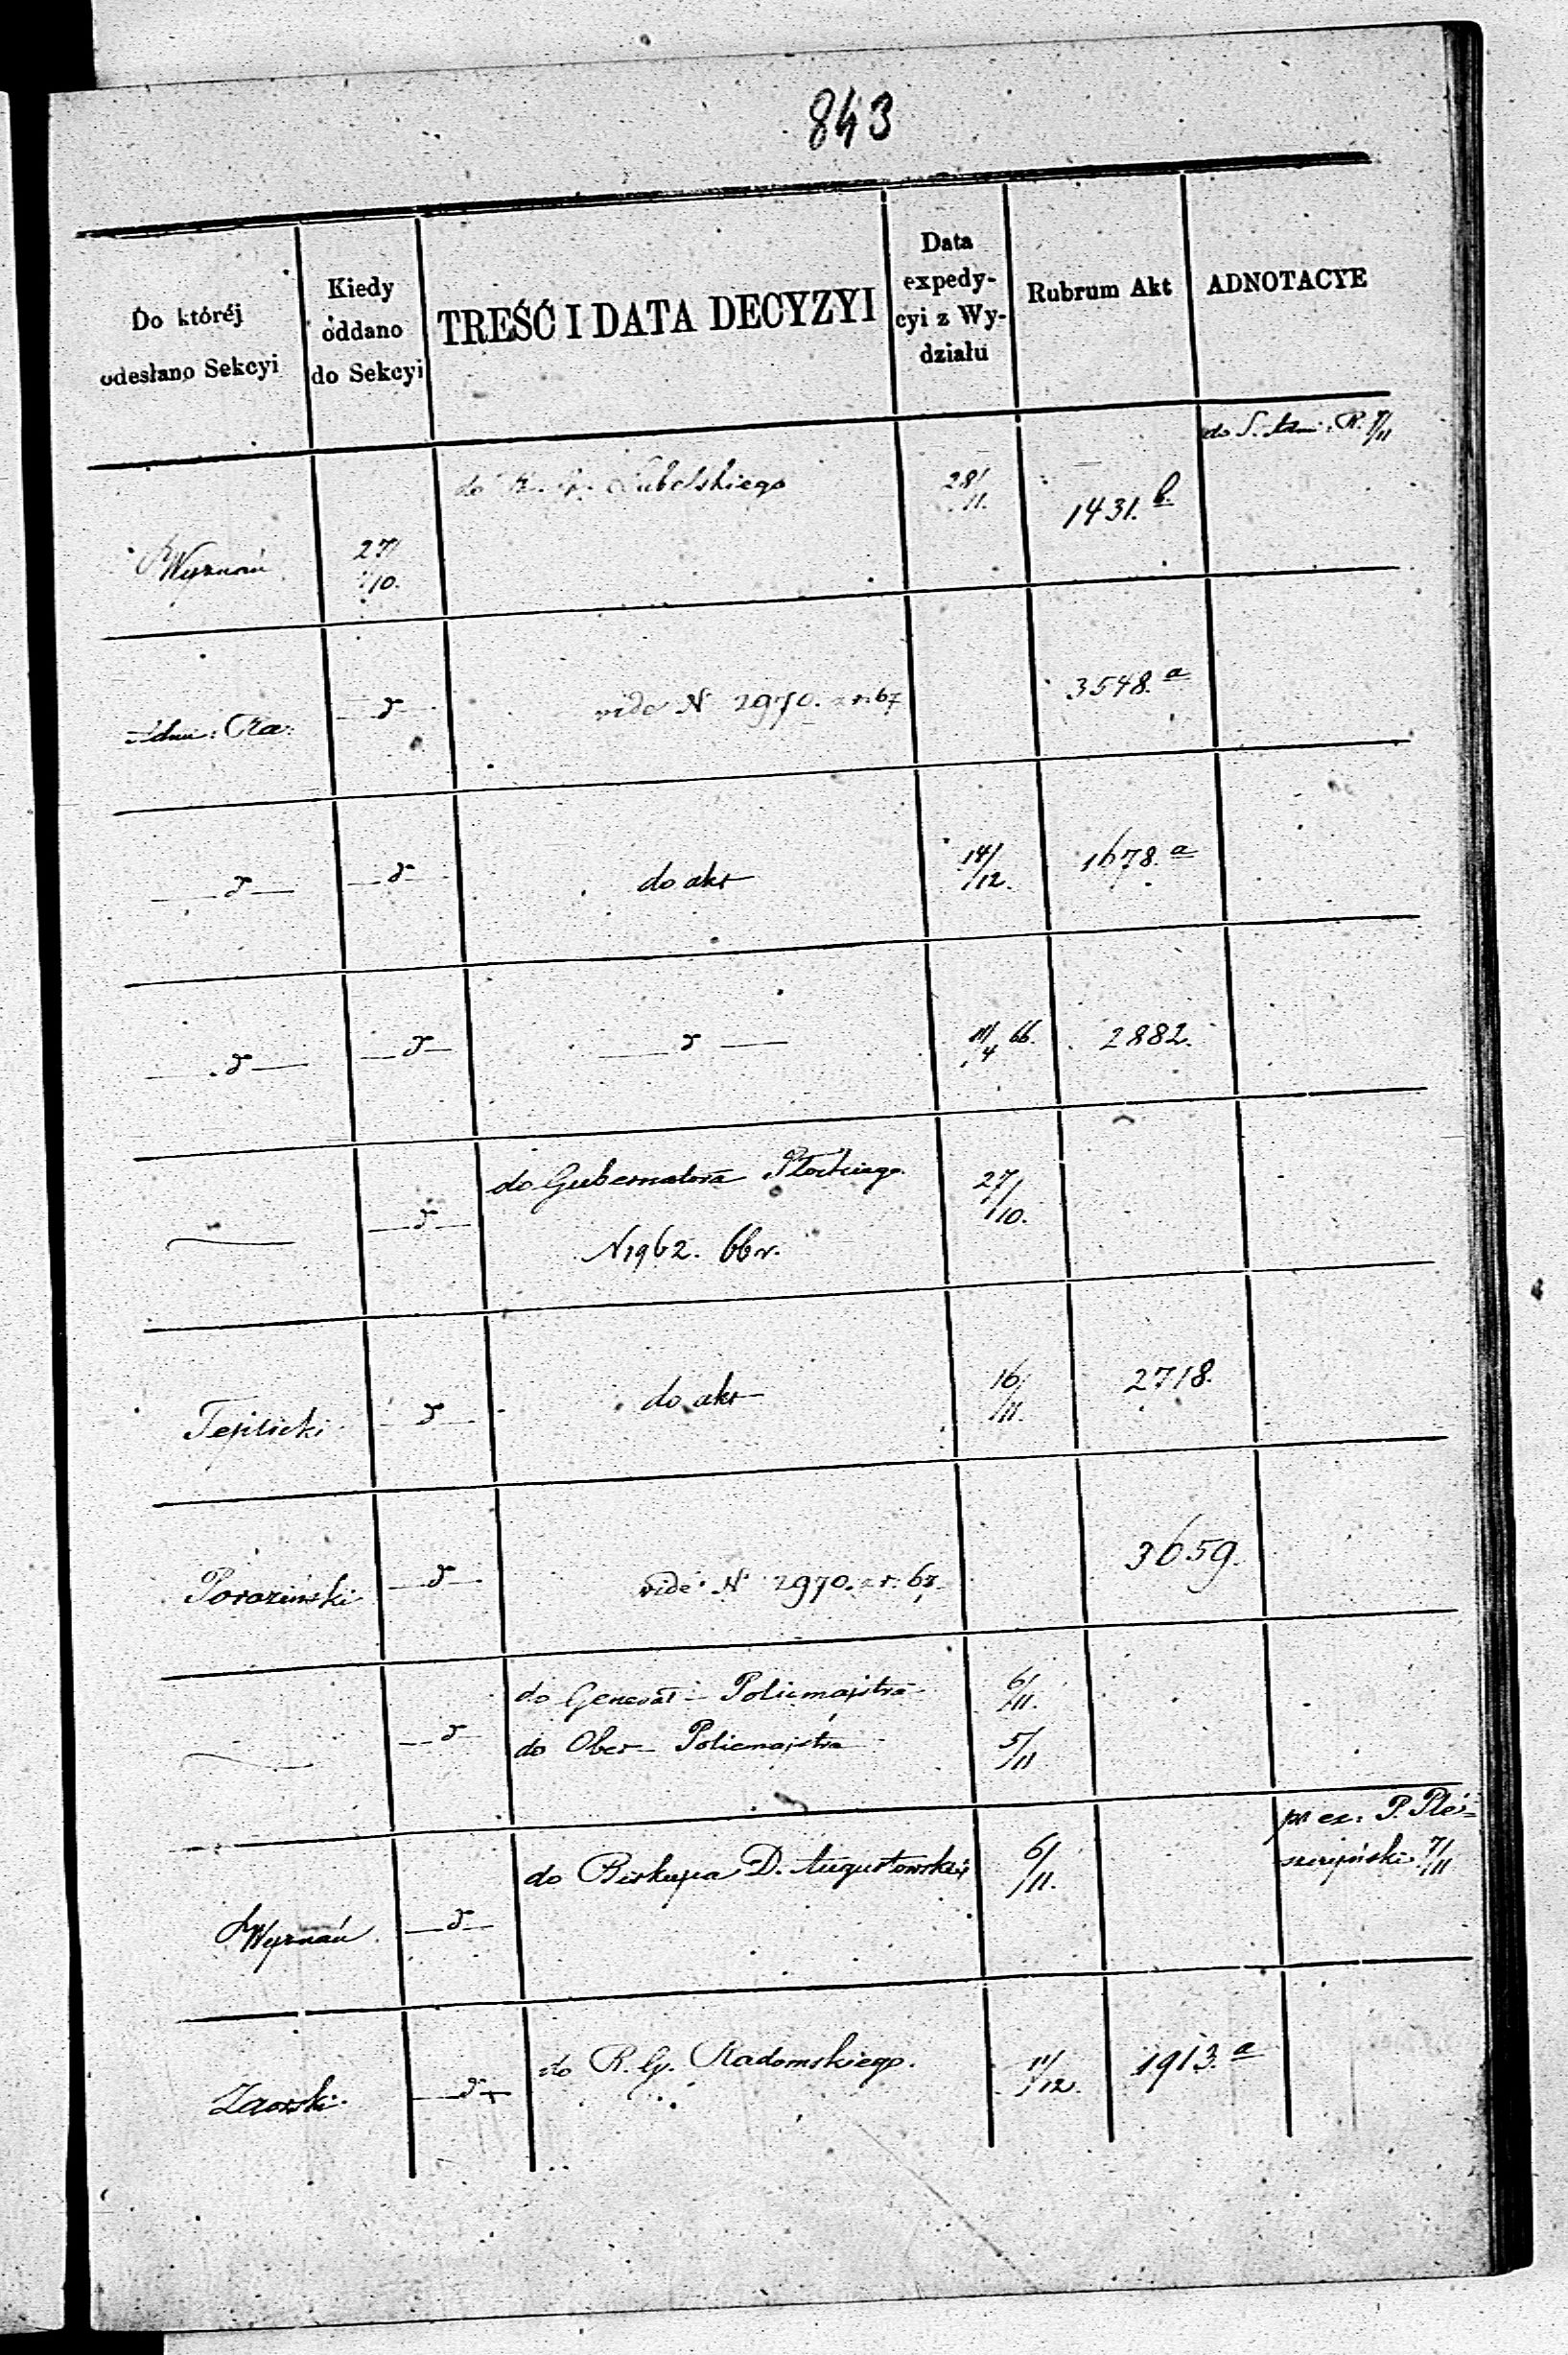 843
Do któréj
odesłano Sekcyi
Kiedy
oddano
do Sekcyi
TREŚĆ I DATA DECYZYI
Data
expedy-
cyi z Wy-
działu
Rubrum Akt
ADNOTACYE
do S. Adm: R. 7/11
do R. G. Lubelskiego
28/11.
1431. b.
Wyznań
27/10.
Adm:
vide N 2970. z r. 67
3548. a
do akt
14/12.
1678. a
11/4 66.
2882.
do Gubernatora Płockiego
27/10.
N 1962. 66 r.
Teplicki
do akt
16/11.
2718.
Poraziński
vide N 2970. z r. 67.
3659.
do Generał-Policmajstra
6/11.
do Ober-Policmajstra
5/11
do Biskupa D. Augustowskiej
6/11.
P. Ple-
7/11
Wyznań
Zaorski.
do R. G. Radomskiego.
11/12.
1913. a